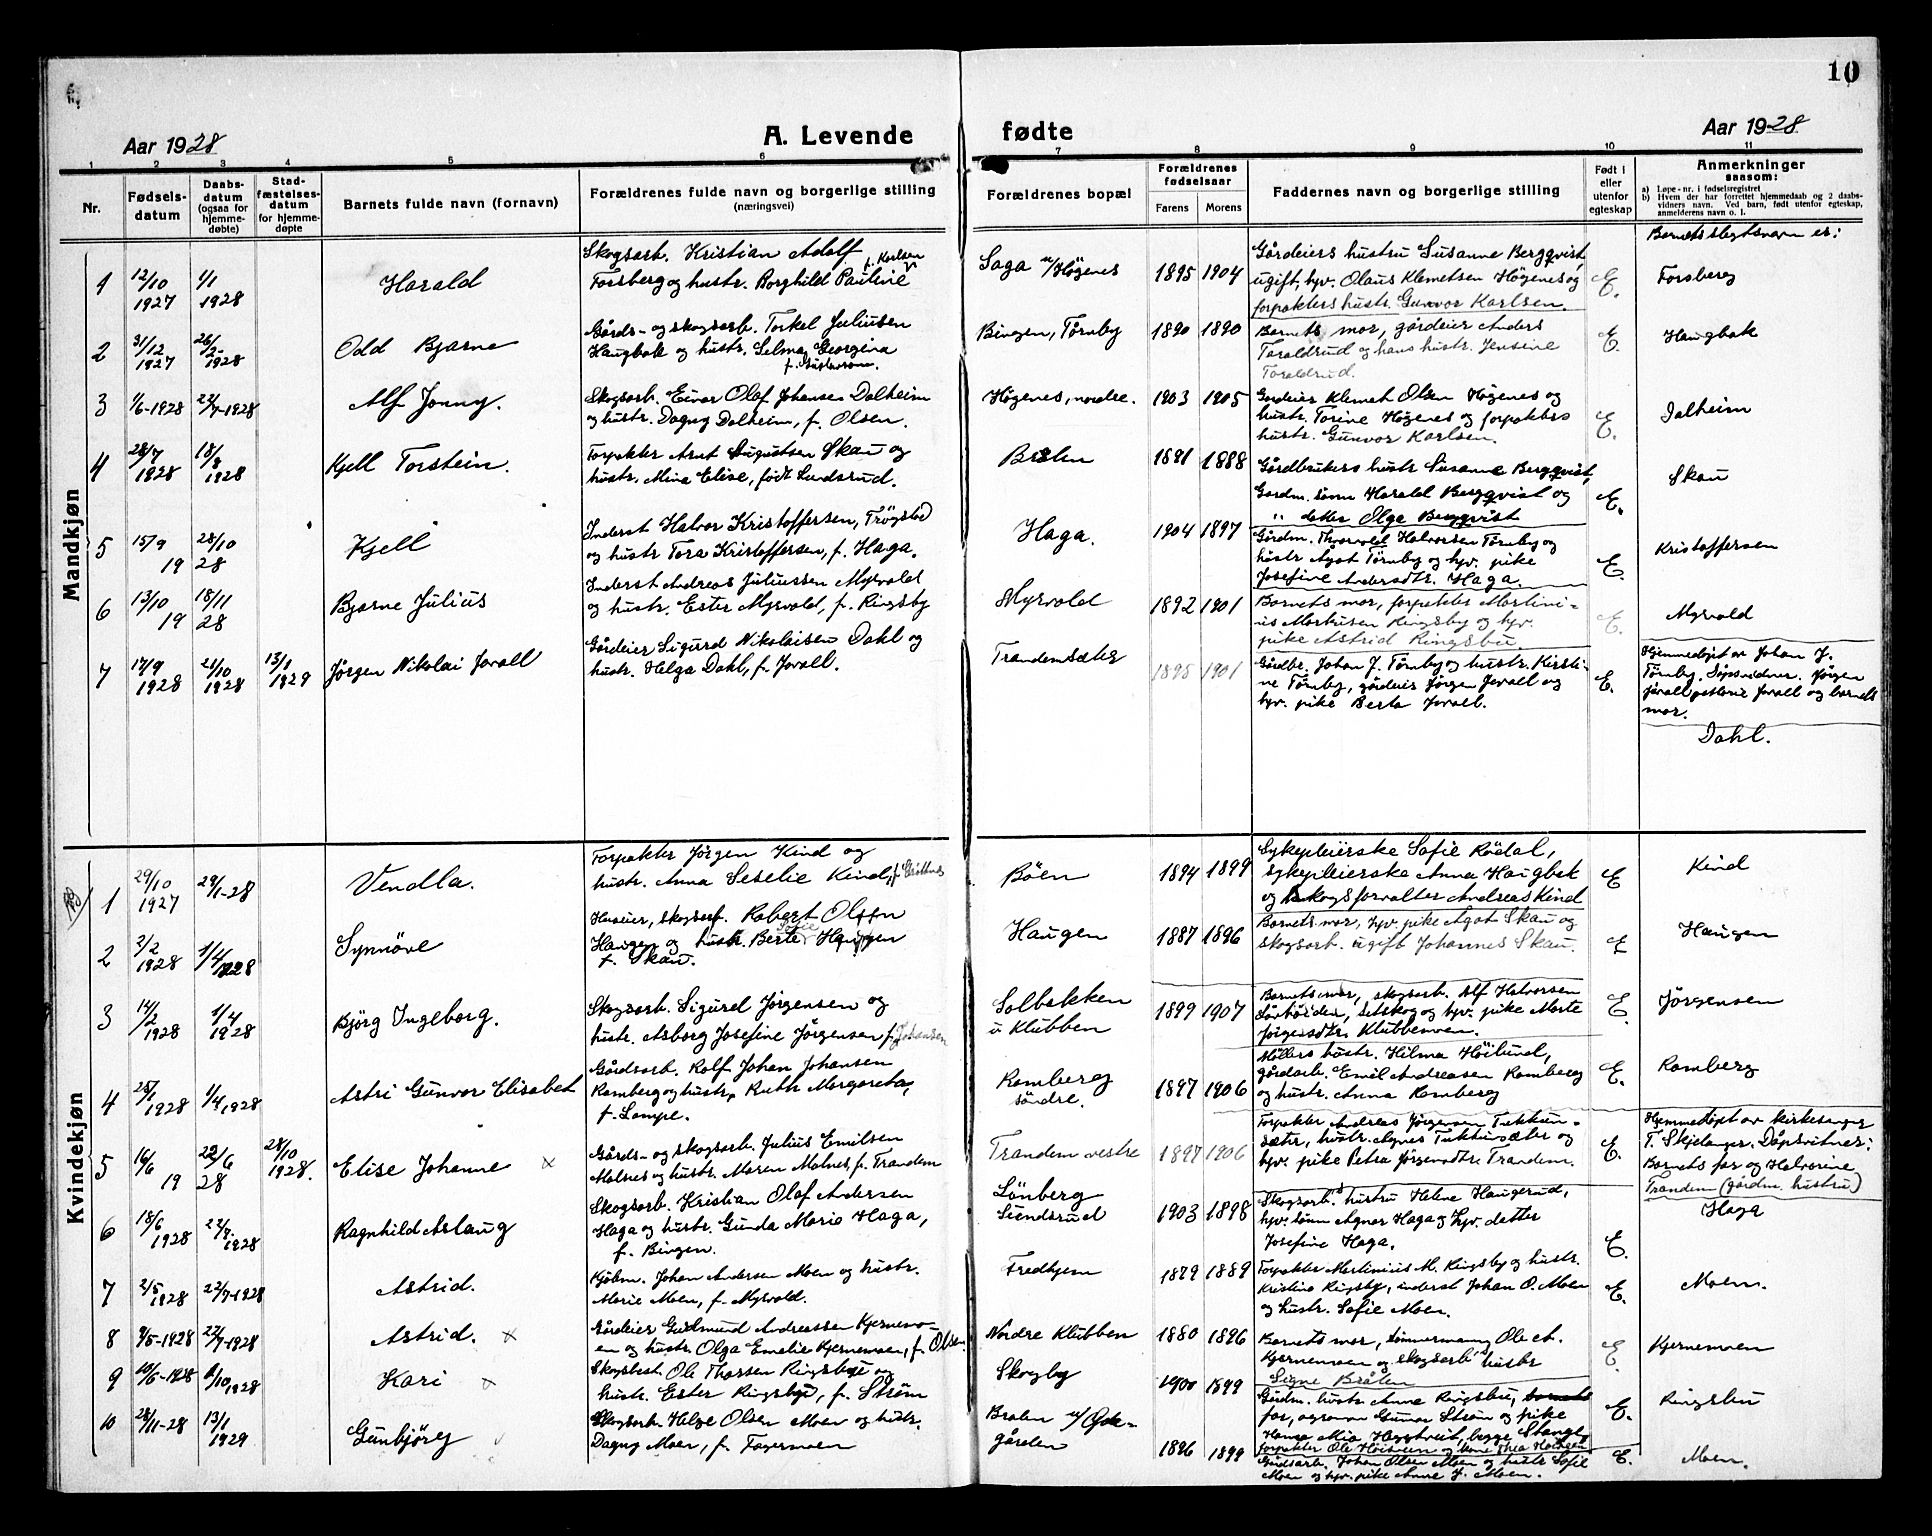 10
Aar 1928
A. Levende
fødte
Aar 1928
1 2 3 4 5 6 7 8 9 10 11
Nr.
Fødsels-
datum
Daabs-
datum
(ogsaa for
hjemme-
døbte)
Stad-
fæstelses-
datum
for hjemme-
døpte
Barnets fulde navn (fornavn)
Forældrenes fulde navn og borgerlige stilling
(næringsvei)
Forældrenes bopæl
Forældrenes
fødselsaar
Farens Morens
Faddernes navn og borgerlige stilling
Født i
eller
utenfor
egteskap
Anmerkninger
saasom:
a) Løpe-nr. i fødselsregistret
b) Hvem der har forrettet hjemmedaab og 2 daabs-
vidners navn. Ved barn, født utenfor egteskap,
anmelderens navn o. l.
Barnets slegtsnavn er:
Mandkjøn
1 12/10 1927 1/1 1928 Harald
Skogsarb. Kristian Adolf
Forsberg og hustr. Borghild Pauline f. Karlsen
Saga u/Högenes 1895 1904
Gårdeiers hustru Susanne Bergqvist,
ugift, hjv. Olaus Klemetsen Högenes og
forpakters hustr. Gunvor Karlsen.
E. Forsberg
2 31/12 1927 26/2-1928 Odd Bjarne
Gårds- og skogsarb. Torkel Juliusen
Haugbak og hustr. Selma Georgina
f. Gustavson.
Bingen, Tørnby 1890 1890
Barnets mor, gårdeier Anders
Toraldrud og hans hustr. Jensine
Toraldrud.
E. Haugbak
3 1/6-1928 22/7-1928 Alf Jonny.
Skogsarb. Einar Olaf Johansen Dalheim
og hustr. Dagny Dalheim, f. Olsen.
Högenes, nordre. 1903 1905
Gardeier Klemet Olsen Högenes og
hustr. Torine Högenes og forpakters
hustr. Gunvor Karlsen.
E. Dalheim
4 28/7 1928 18/8 1928 Kjell Torstein.
Forpakter Arnt Augustsen Skau og
hustr. Mina Elise, født Lundsrud.
Brålen 1891 1888
Gårdbrukers hustr Susanne Bergqvist,
Gardm. sønn Harald Bergqvist og
" datter Olga Bergqvist
E. Skau
5 15/9 1928 28/10 Kjell
Inderst Halvor Kristoffersen, Trøgstad
og hustr Tora Kristoffersen, f. Haga.
Haga. 1904 1897
Gårdm. Thorvald Halvorsen Tørnby og
hustr Agot Tørnby og hjv. pike
Josefine Andersdtr. Haga.
E. Kristoffersen
6 13/10 1928 18/11 Bjarne Julius
Inderst Andreas Juliussen Myrvold
og hustr. Ester Myrvold, f. Ringsby
Myrvold 1892 1901
Barnets mor, forpakter Martini-
us Markusen Ringsby og hjv.
pike Astrid Ringsbu
E. Myrvold
7 17/9 1928 21/10 1928 13/1 1929 Jörgen Nikolai Jovall
Gårdeier Sigurd Nikolaisen Dahl og
hustr. Helga Dahl, f. Jovall.
Trandemsæter 1895 1901
Gårdbr. Johan J. Tørnby og hustr. Kirsti-
ne Tørnby, gårdeier Jørgen Jovall og
hjv. pike Berta Jovall.
E. Hjemmedøpt av Johan J.
Tørnby. Dåpsvidner. Jørgen
Jovall og barnets
mor.
Dahl.
Kvindekjøn
1 29/10 1927 29/1-28 Vendla.
Forpakter Jörgen Kind og
hustr. Anna Seselie Kind, f. Grøttnes
Böen 1894 1899
Sykepleierske Sofie Rödal,
sykepleierske Anna Haugbak
og skogsforvalter Andreas Kind
E Kind
2 2/2 1928 1/4 1928 Synnöve
Huseier, skogsarb. Robert Olsen
Haugen og hustr. Berte Sofie Haugen
f. Skau.
Haugen 1887 1896
Barnets mor, hjv. pike Agot Skau og
skogsarb. ugift Johannes Skau.
E Haugen
3 14/2 1928 1/4 1928 Björg Ingeborg.
Skogsarb. Sigurd Jörgensen og
hustr. Asborg Josefine Jörgensen f. Johansen
Solbakken
u Klubben 1899 1907
Barnets mor, skogsarb. Alf Halvorsen
Setskog og hjv. pike Marte
Jörgensdtr. Klubbenven.
E. Jörgensen
4 25/1 1928 1/4 1928 Astri Gunvor Elisabet
Gårdsarb. Rolf Johan Johansen
Ramberg og hustr. Ruth Margareta,
f. Lampe.
Ramberg
söndre. 1897 1906
Möllers hustr. Hilma Höilund,
gårdarb. Emil Andreasen Ramberg
og hustr. Anna Ramberg
E. Ramberg
5 16/6 1928 22/6 28/10 1928. Elise Johanne x
Gårds- og skogsarb. Julius Emilsen
Malnes og hustr. Maren Malnes, f. Trandem
Trandem vestre 1897 1906
Forpakter Andreas Jörgensen Tukkun-
sæter, hustr. Agnes Tukkunsæter og
hjv. pike Petra Jörgensdtr. Trandem.
E. Hjemmedöpt av kirkesanger
T. Skjelanger. Dåpsvitner:
Barnets far og Halvorine
Trandem (gårdm. hustru)
6 18/6 1928 22/7-1928 Ragnhild Aslaug
Skogsarb. Kristian Olaf Andersen
Haga og hustr. Gunda Marie Haga,
f. Bingen.
Lönberg
Sundsrud 1903 1898
Skogsarb's hustru Helene Haugerud,
hjv. sønn Agnar Haga og hjv. datter
Josefine Haga.
E. Haga
7 2/5 1928 22/7-1928 Astrid.
Kjöbm. Johan Andersen Moen og hustr.
Marie Moen, f. Myrvold.
Fredhjem 1879 1889
Forpakter Martinius M. Ringsby og hustr.
Kristina Ringsby, inderst Johan O. Moen
og hustr. Sofie Moen.
E. Moen.
8 9/5-1928 22/7-1928 Astrid. x
Gårdeier Gudmund Andreassen Kjernemo-
en og hustr. Olga Emelie Kjernemoen, f. Olsen.
Nordre Klubben 1880 1896
Barnets mor, tömmermann Ole A.
Kjernemoen og skogsarb's hustr
Signe Brålen
E. Kjernemoen
9 10/6-1928 6/10 1928 Kari x
Ole Thorsen Ringsbye og
hustr. Ester Ringsbye, f. Ström
Skogby 1900 1899
Gårdm. hustr Anna Ringsbu, barnets
far, agronom Gunnar Ström og pike
Hanna Mia Haggtveit, begge Stange,
forpakter Ole
E. Ringsbu
10 28/11-28 13/1 1929 Gunbjörg
Skogsarb. Helge Olsen Moen og hustr.
Dagny Moen, f. Fagermoen
Bralen u/ Øde-
gården 1896 1899
Gårdsarb. Johan Olsen Moen og hustr Sofie
Moen og hjv. pike Anne J. Moen.
E. Moen.